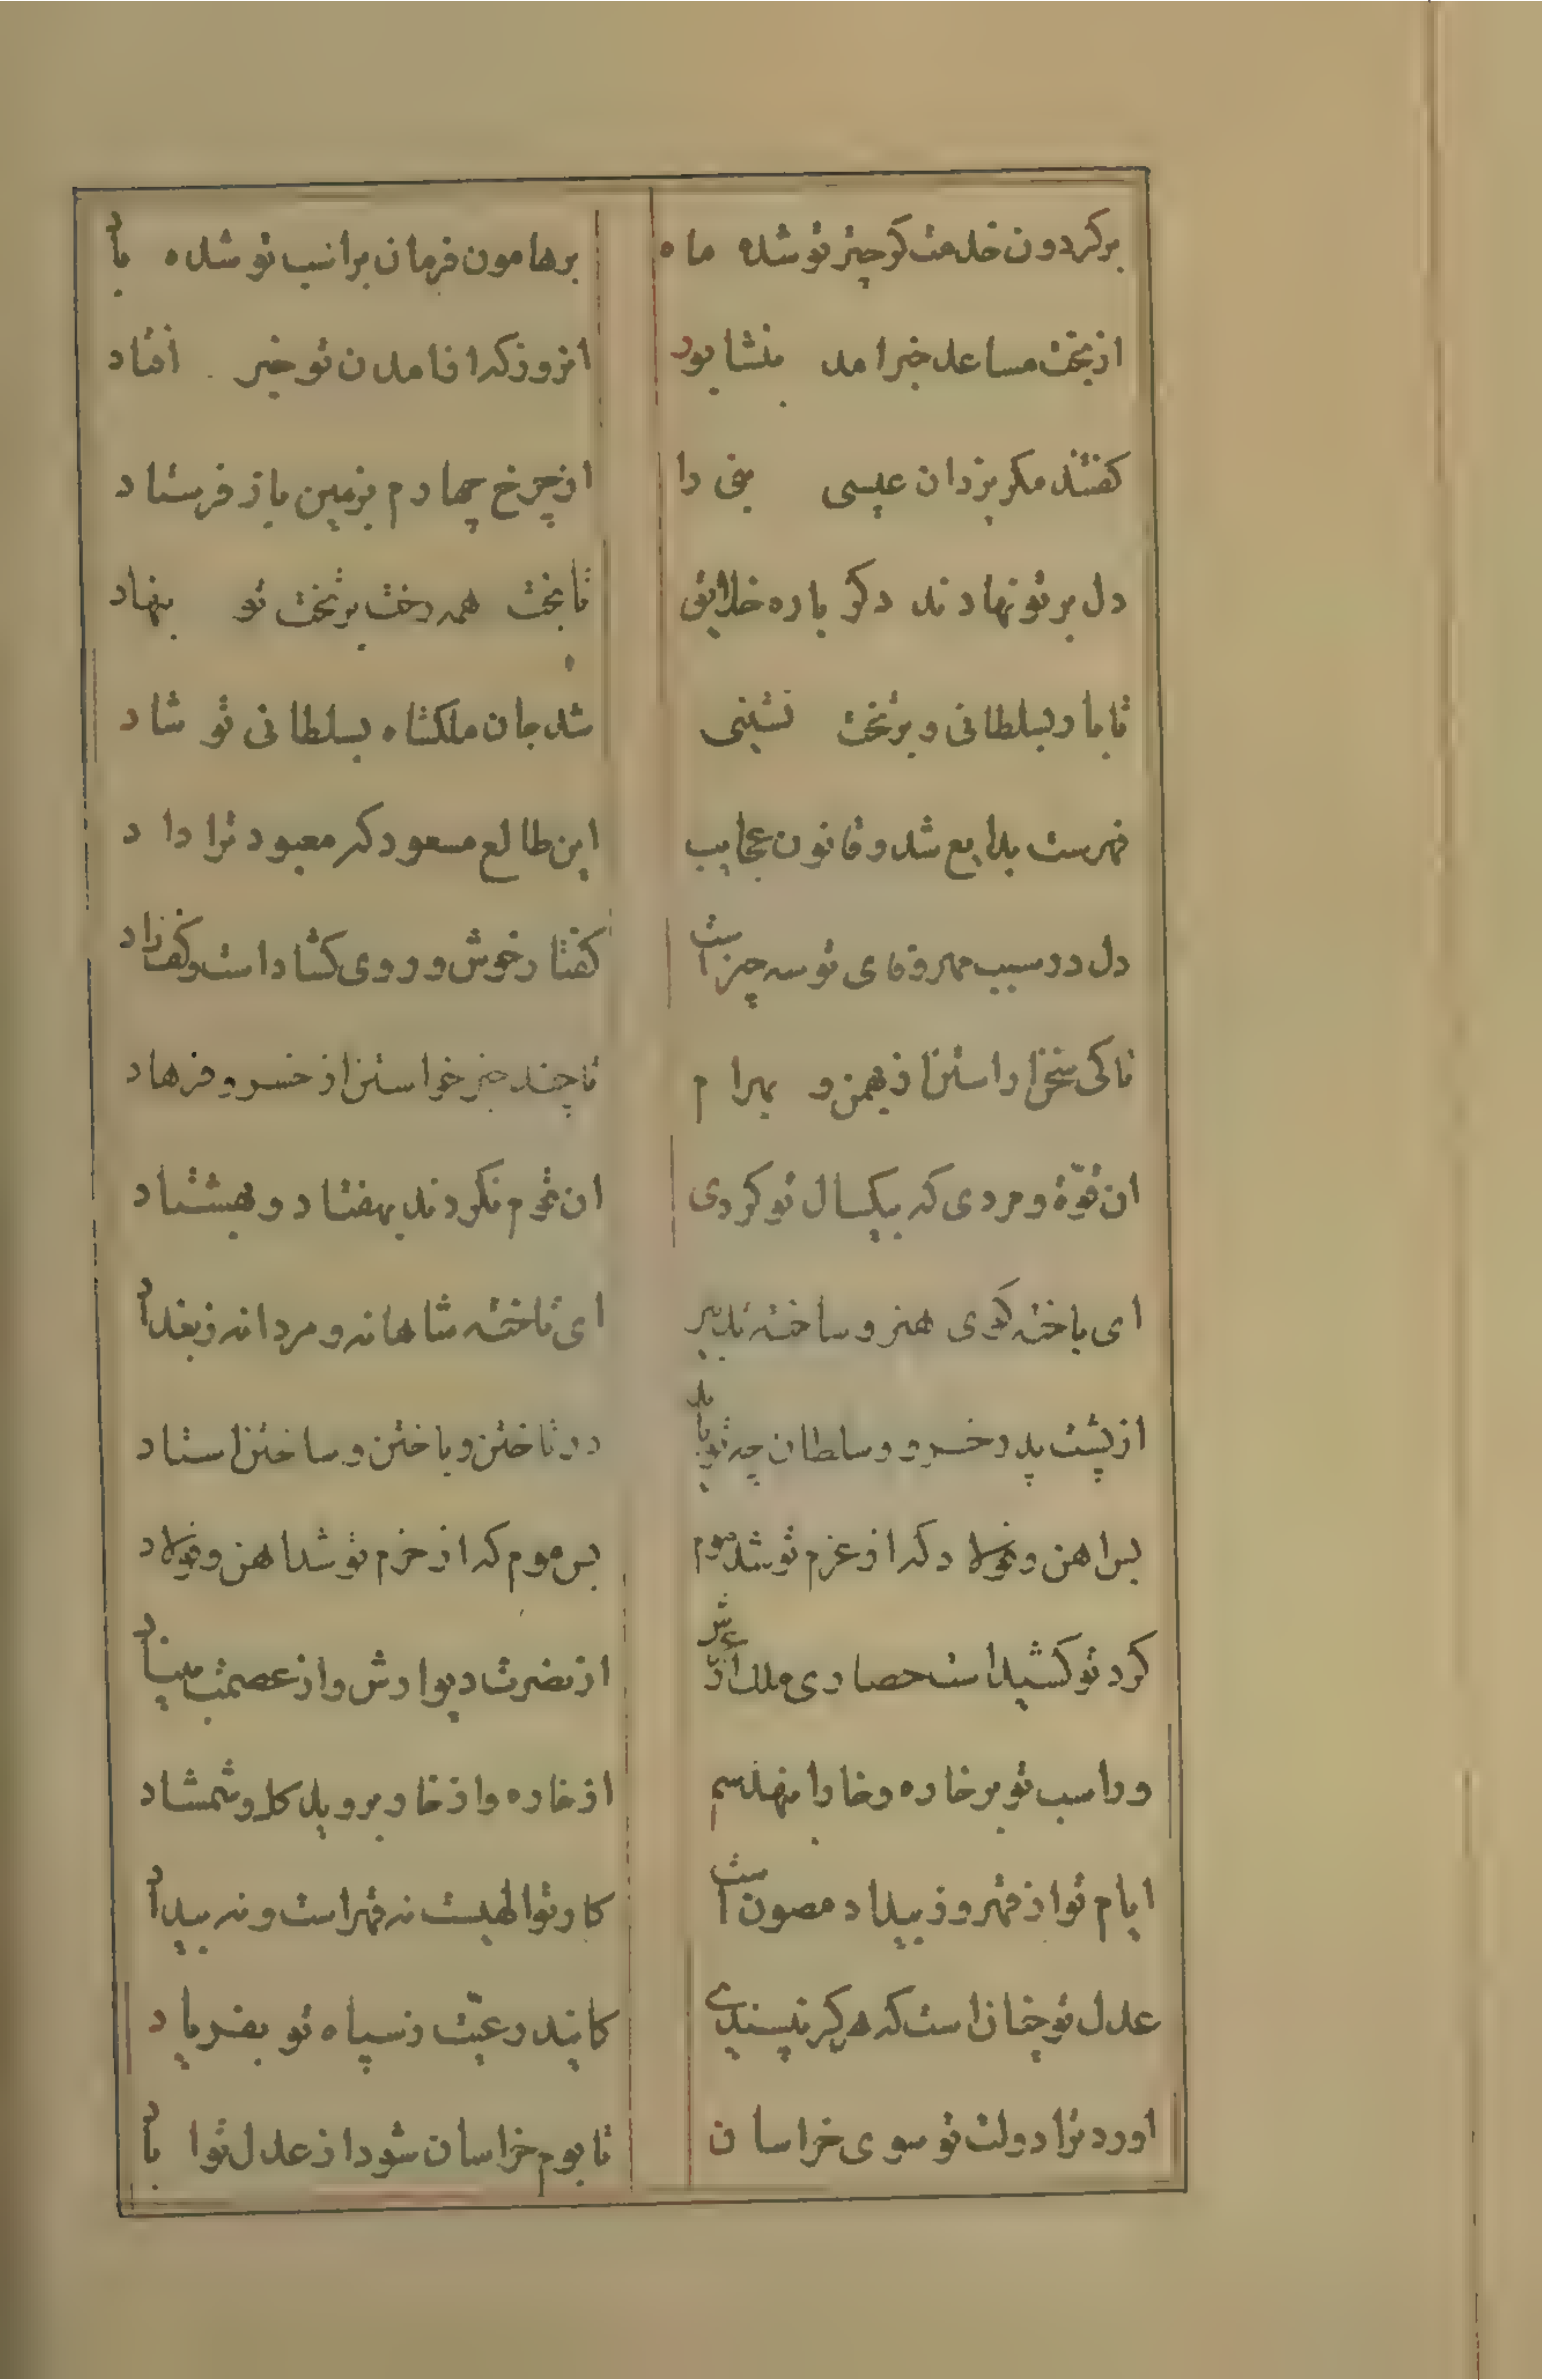 برکردون خدمت کر چتر تو شده ماه
برهامون فرمان بر اسب تو شده باد
از بخت مساعد خبر امد بنشابود
انروز که اوامدن تو خبر افتاد
کفتند مکر یزدان عیسی نبی را
از چرخ چهارم بزمین باز فرستاد
دل بر تو نهادند دکر باره خلایق
تا بخت همه رخت بر تخت تو بنهاد
تا باد بسلطانی و بر تخت نشینی
شد جان ملکشاه بسلطانی تو شاد
فهرست بدایع شد و قانون عجایب
این طالع مسعود که معبود ترا داد
دل در سبب مهر وفای تو سه چیز است
کفتار خوش و روی کشاد است و کف راد
تا کی سخن اراستن از بهمن و بهرام
تا چند خبر خواستن از خسرو و فرهاد
ان قوّة و مردی که بیکسال تو کردی
ان قوم نکردند بهفتاد و بهشتاد
ای باخته کوی هنر و ساخته تدبیر
ای تاخته شاهانه و مردانه ز بغداد
از پشت پدر خسرو و سلطان چه تو باید
در تاختن و باختن و ساختن استاد
بس اهن و فولاد که از عزم تو شد موم
بس موم که از حزم تو شد اهن و فولاد
کرد تو کشید است حصاری ملک العرش
از نصرت دیوارش و از عصمت بنیاد
ور اسب تو بر خاره و خارا بنهد سم
از خاره و از خار بروید کل و شمشاد
ایام تو از قهر و ز بیداد مصون است
کار تو الهیست نه قهر است و نه بیداد
عدل تو چنان است که هرکز نپسندی
کایند رعیّت ز سپاه تو بفریاد
اورد ترا دولت تو سوی خراسان
تا بوم خراسان شود از عدل تو اباد